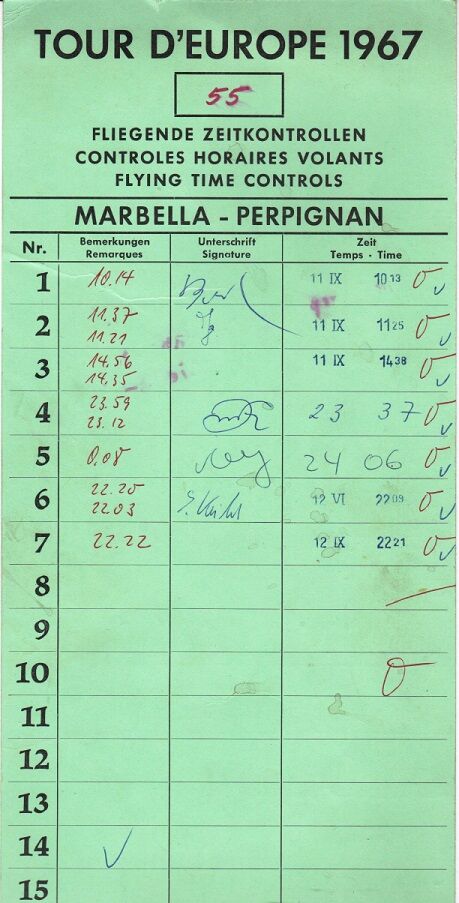 TOUR D'EUROPE 1967
55
FLIEGENDE ZEITKONTROLLEN
CONTROLES HORAIRES VOLANTS
FLYING TIME CONTROLS
MARBELLA - PERPIGNAN
Nr. Bemerkungen Unterschrift Zeit
Remarques Signature Temps · Time
1 10.14 11 IX 10 13 0
2 11.37 11 IX 11 25 0
11.21
3 14.56 11 IX 14 38 0
14.35
4 23.59 23 37 0
23.12
5 0.08 24 06 0
6 22.20 12 VI 22 09 0
22.03
7 22.22 12 IX 22 21 0
8
9
10 0
11
12
13
14
15